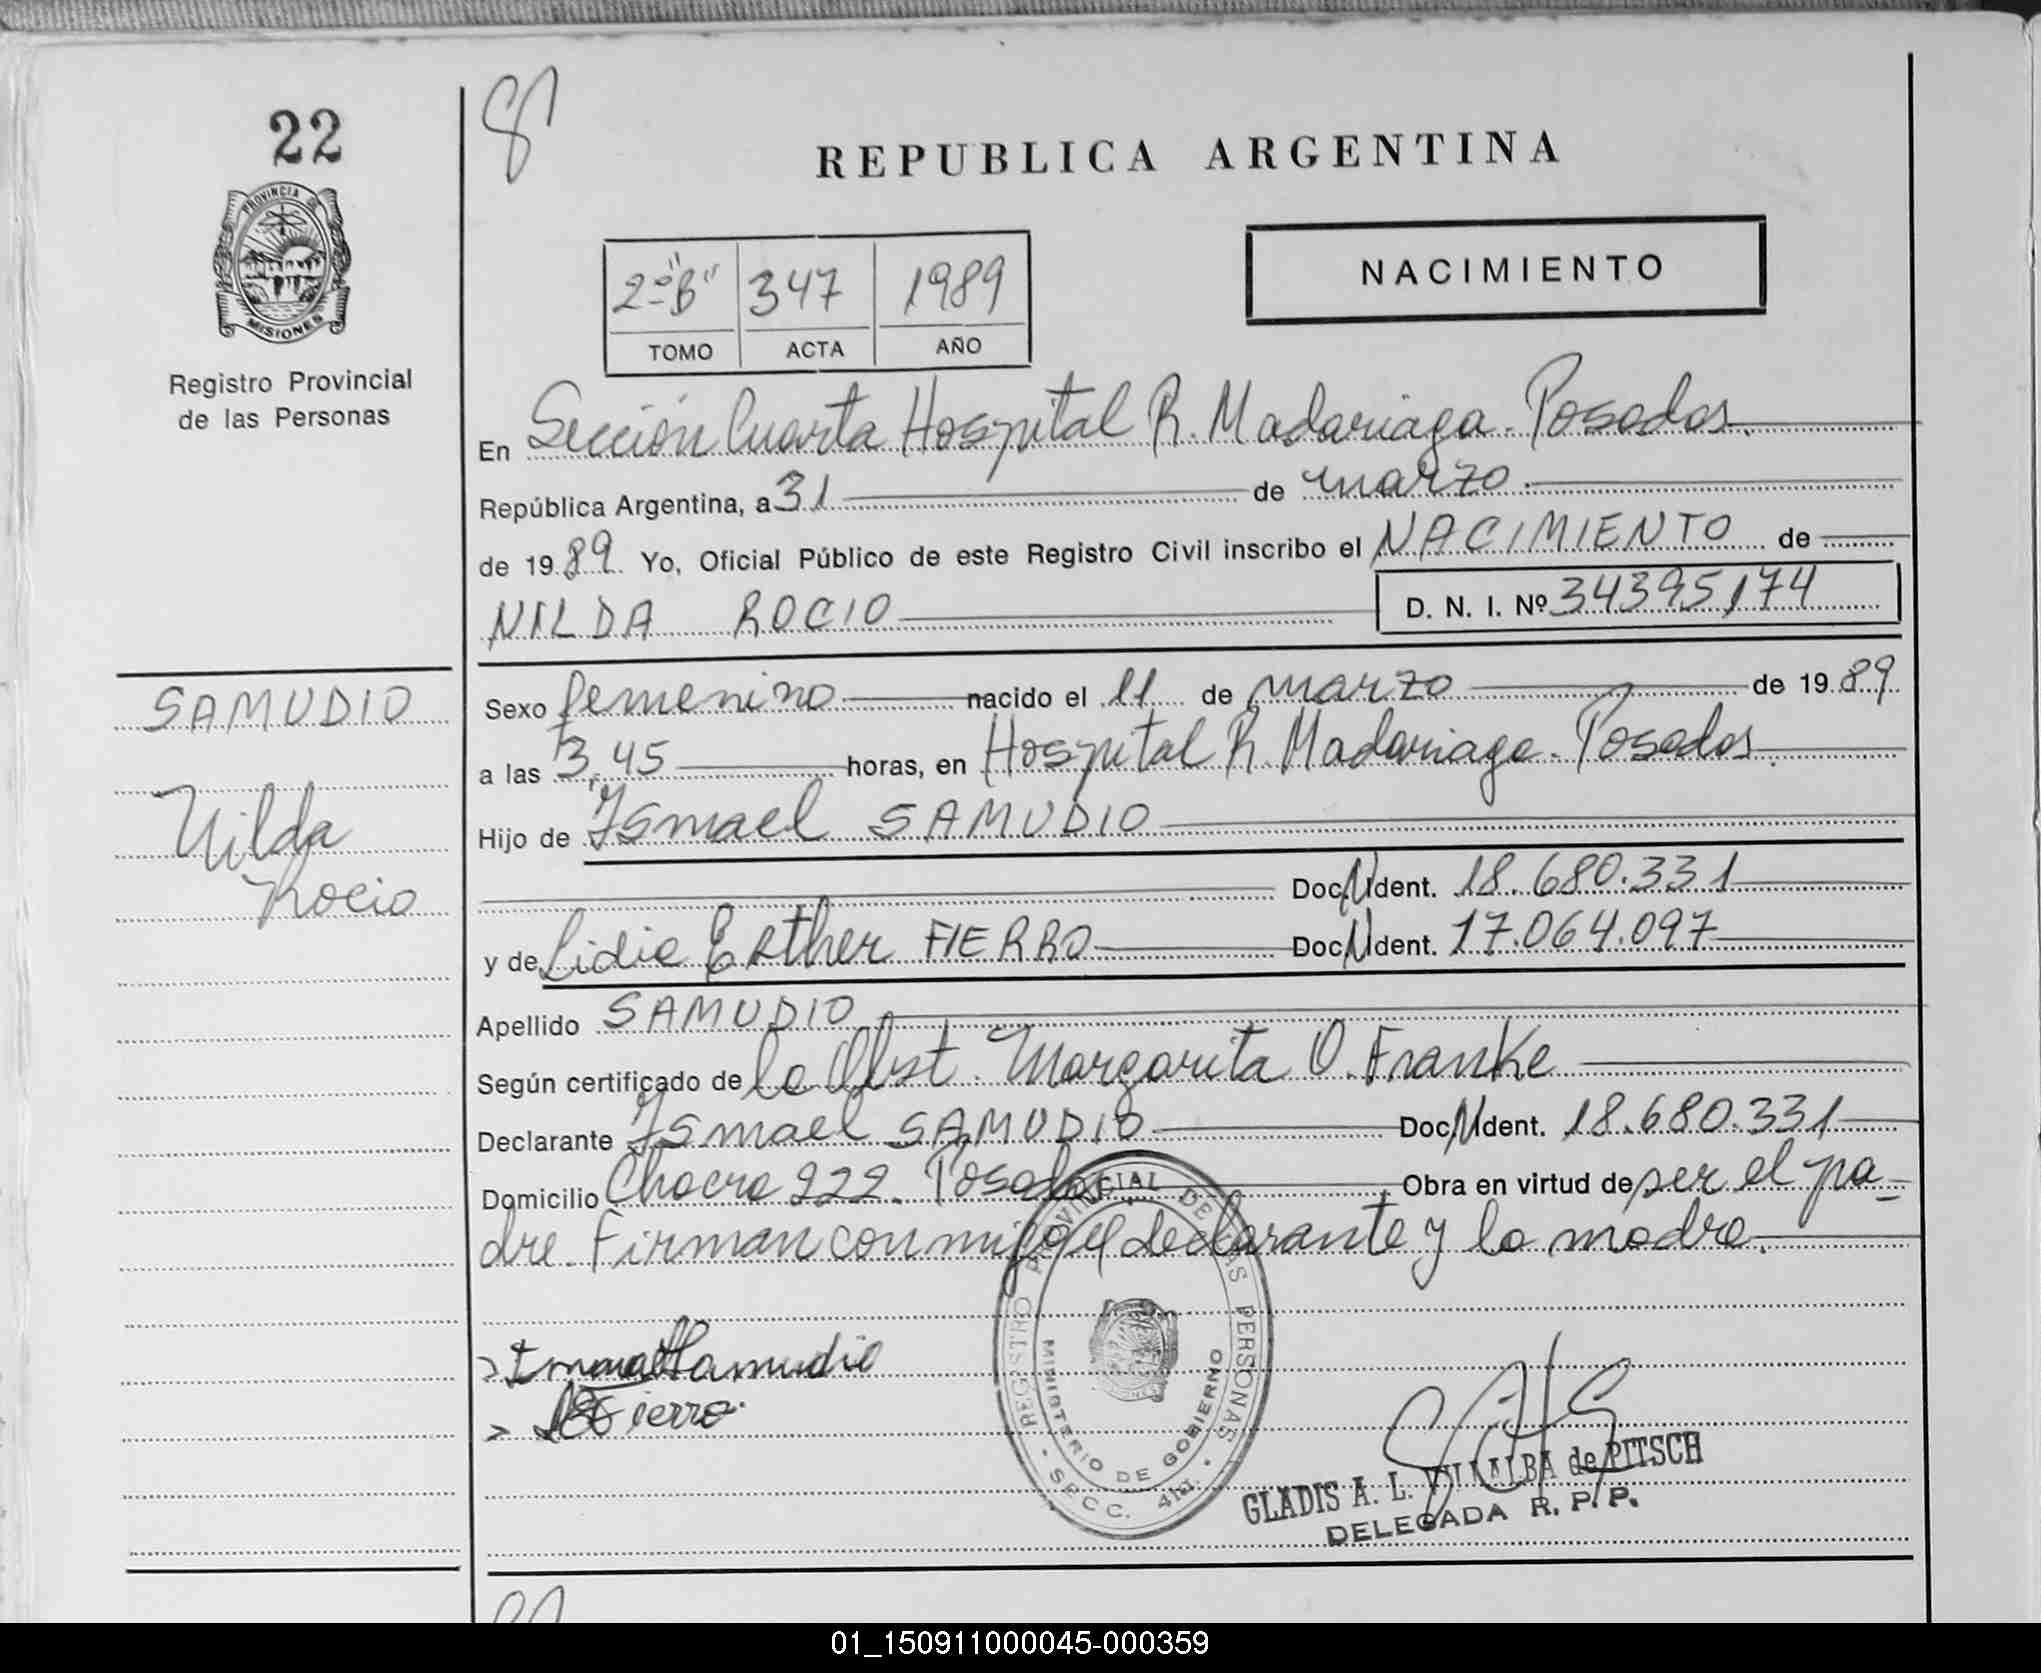 22
PROVINCIA DE
MISIONES
Registro Provincial
de las Personas
REPUBLICA ARGENTINA
2º "B" 347 1989
TOMO ACTA AÑO
NACIMIENTO
En Sección Cuarta Hospital R. Madariaga. Posadas.
República Argentina, a 31 de marzo.
de 1989. Yo, Oficial Público de este Registro Civil inscribo el NACIMIENTO de
NILDA ROCIO D. N. I. Nº 34395174
SAMUDIO
Nilda
Rocio
Sexo femenino nacido el 11 de marzo de 1989
a las 3,45 horas, en Hospital R. Madariaga. Posadas.
Hijo de Ismael SAMUDIO
Doc. N. Ident. 18.680.331
y de Lidia Esther FIERRO Doc. N. Ident. 17.064.097
Apellido SAMUDIO
Según certificado de la Obst. Margarita O. Franke
Declarante Ismael SAMUDIO Doc. N. Ident. 18.680.331
Domicilio Chacra 222. Posadas Obra en virtud de ser el pa-
dre. Firman conmigo el declarante y la madre.
Ismael Samudio
Fierro
REGISTRO PROVINCIAL DE LAS PERSONAS
MINISTERIO DE GOBIERNO
SECC. 4ta.
GLADIS A. L. VILLALBA de PITSCH
DELEGADA R. P. P.
01_150911000045-000359